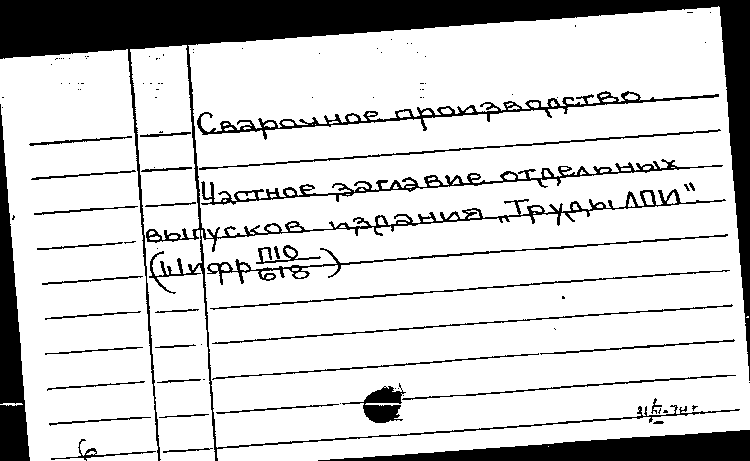 Сварочное производство.
Частное заглавие отдельных
выпусков издания „Труды ЛПИ".
(Шифр П10/618)
6